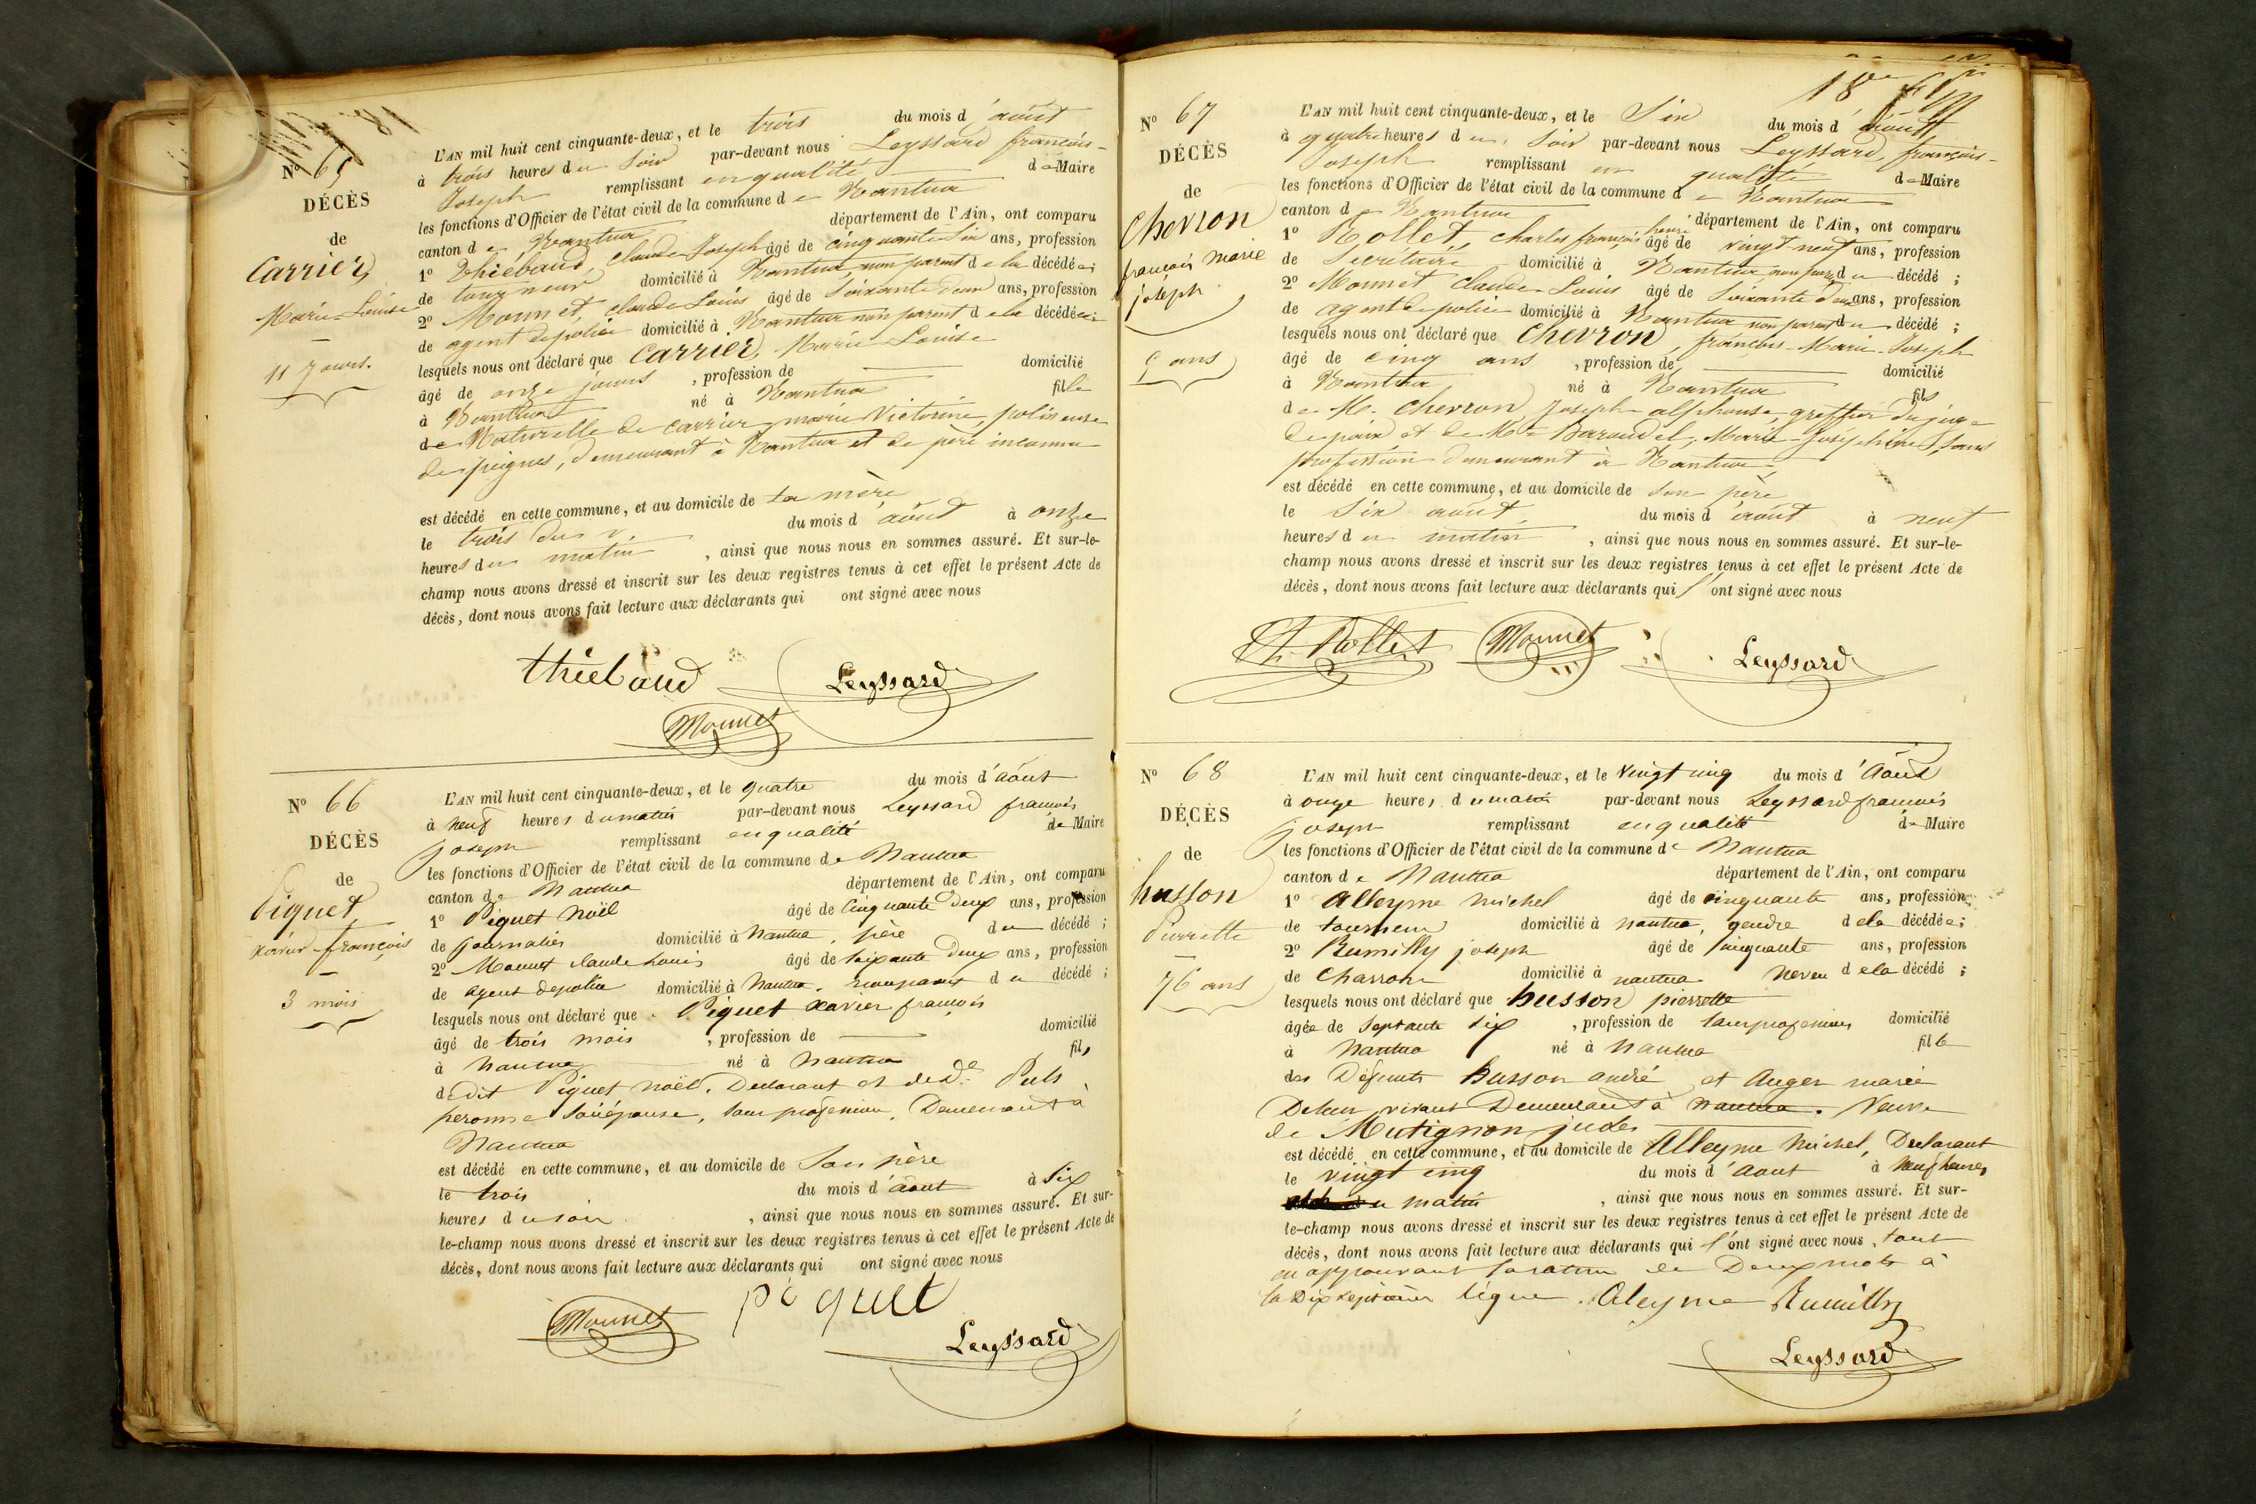 N° 65
DÉCÈS
de
Carrier,
Marie-Louise
11 jours.
L'AN mil huit cent cinquante-deux, et le trois du mois d'août
à trois heures du soir par-devant nous Leyssard françois-
Joseph remplissant en qualité de Maire
les fonctions d'Officier de l'état civil de la commune de Nantua
canton de Nantua département de l'Ain, ont comparu
1° Thiébaud, Claude Joseph âgé de cinquante six ans, profession
de tourneur domicilié à Nantua, non parent de la décédée;
2° Monnet, claude Louis âgé de soixante deux ans, profession
de agent de police domicilié à Nantua non parent de la décédée;
lesquels nous ont déclaré que Carrier, Marie Louise
âgé de onze jours, profession de domicilié
à Nantua né à Nantua fille
de Naturelle de Carrier marie Victorine, poliseuse
de peignes, demeurant à Nantua et de père inconnu
est décédé en cette commune, et au domicile de sa mère
le trois du mois d'août à onze
heures du matin, ainsi que nous nous en sommes assuré. Et sur-le-
champ nous avons dressé et inscrit sur les deux registres tenus à cet effet le présent Acte de
décès, dont nous avons fait lecture aux déclarants qui ont signé avec nous
thiebaud Leyssard
Monnet
N° 66
DÉCÈS
de
Piguet,
Xavier-françois
3 mois
L'AN mil huit cent cinquante-deux, et le quatre du mois d'août
à neuf heures du matin par-devant nous Leyssard françois
joseph remplissant en qualité de Maire
les fonctions d'Officier de l'état civil de la commune de Nantua
canton de Nantua département de l'Ain, ont comparu
1° Piguet Noël âgé de cinquante deux ans, profession
de journalier domicilié à Nantua, père du décédé;
2° Monnet claude Louis âgé de soixante deux ans, profession
de agent de police domicilié à Nantua, non parent du décédé;
lesquels nous ont déclaré que Piguet Xavier françois
âgé de trois mois, profession de domicilié
à Nantua né à Nantua fils
de dit Piguet noël, Declarant et de de
peronne son épouse, sans profession, Demeurant à
Nantua
est décédé en cette commune, et au domicile de son père
le trois du mois d'août à six
heures du soir, ainsi que nous nous en sommes assuré. Et sur-
le-champ nous avons dressé et inscrit sur les deux registres tenus à cet effet le présent Acte de
décès, dont nous avons fait lecture aux déclarants qui ont signé avec nous
Monnet piguet
Leyssard
N° 67
DÉCÈS
de
Chevron
françois Marie
joseph
5 ans
L'AN mil huit cent cinquante-deux, et le six du mois d'août
à quatre heures du soir par-devant nous Leyssard, françois-
Joseph remplissant en qualité de Maire
les fonctions d'Officier de l'état civil de la commune de Nantua
canton de Nantua département de l'Ain, ont comparu
1° Rollet, Charles françois henri âgé de vingt-neuf ans, profession
de Secrétaire domicilié à Nantua non parent du décédé;
2° Monnet Claude Louis âgé de soixante deux ans, profession
de agent de police domicilié à Nantua non parent du décédé;
lesquels nous ont déclaré que Chevron, françois-Marie-Joseph
âgé de cinq ans, profession de domicilié
à Nantua né à Nantua fils
de M. Chevron Joseph alphonse, greffier du juge
de paix et de Marie-Joséphine, sans
profession demeurant à Nantua
est décédé en cette commune, et au domicile de son père
le six août du mois d'août à neuf
heures du matin, ainsi que nous nous en sommes assuré. Et sur-le-
champ nous avons dressé et inscrit sur les deux registres tenus à cet effet le présent Acte de
décès, dont nous avons fait lecture aux déclarants qui ont signé avec nous
Ch. Rollet Monnet Leyssard
N° 68
DÉCÈS
de
husson
Pierrette
76 ans
L'AN mil huit cent cinquante-deux, et le vingt cinq du mois d'Août
à onze heures du matin par-devant nous Leyssard françois
joseph remplissant en qualité de Maire
les fonctions d'Officier de l'état civil de la commune de Nantua
canton de Nantua département de l'Ain, ont comparu
1° Alleyme michel âgé de cinquante ans, profession
de tourneur domicilié à nantua, gendre de la décédée;
2° Rumilly joseph âgé de cinquante ans, profession
de Charron domicilié à nantua neveu de la décédé;
lesquels nous ont déclaré que husson pierrette
âgée de septante six, profession de sans profession domicilié
à Nantua né à Nantua fille
des Défunts husson andré et Auger marie
De leur vivant Demeurant à Nantua. Veuve
de Mutignon judes
est décédé en cette commune, et au domicile de Alleyme Michel, Declarant
le vingt cinq du mois d'août à neuf heures
du matin, ainsi que nous nous en sommes assuré. Et sur-
le-champ nous avons dressé et inscrit sur les deux registres tenus à cet effet le présent Acte de
décès, dont nous avons fait lecture aux déclarants qui ont signé avec nous, tout
en approuvant la rature de Deux mots à
la Dix septième ligne. Aleyme Rumilly
Leyssard